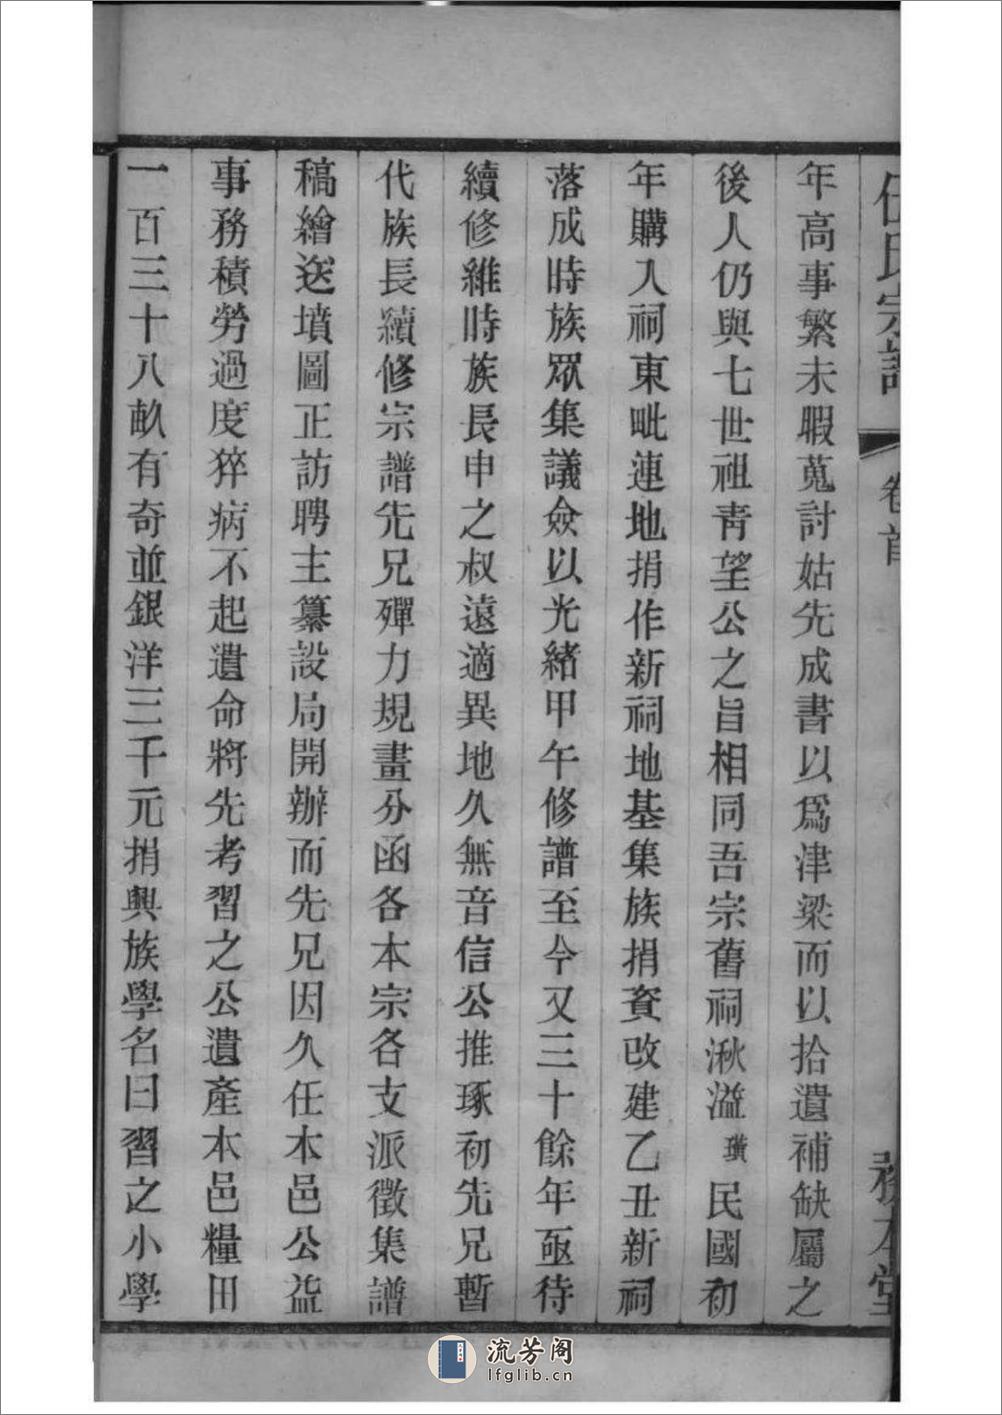 氏宗譜 卷首 務本堂
年高事繁未暇蒐討姑先成書以爲津梁而以拾遺補缺屬之
後人仍與七世祖靑望公之旨相同吾宗舊祠湫溢璜民國初
年購入祠東毗連地捐作新祠地基集族捐資改建乙丑新祠
落成時族眾集議僉以光緒甲午修譜至今又三十餘年亟待
續修維時族長申之叔遠適異地久無音信公推琢初先兄暫
代族長續修宗譜先兄殫力規畫分函各本宗各支派徵集譜
稿繪送墳圖正訪聘主纂設局開辦而先兄因久任本邑公益
事務積勞過度猝病不起遺命將先考習之公遺產本邑糧田
一百三十八畝有奇並銀洋三千元捐興族學名曰習之小學
流芳阁
lfglib.cn